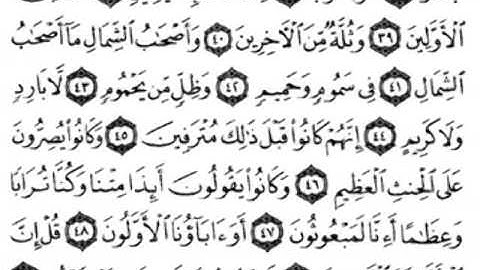 ٱلۡأَوَّلِينَ ٣٩ وَثُلَّةٞ مِّنَ ٱلۡأٓخِرِينَ ٤٠ وَأَصۡحَٰبُ ٱلشِّمَالِ مَآ أَصۡحَٰبُ
ٱلشِّمَالِ ٤١ فِي سَمُومٖ وَحَمِيمٖ ٤٢ وَظِلّٖ مِّن يَحۡمُومٖ ٤٣ لَّا بَارِدٖ
وَلَا كَرِيمٍ ٤٤ إِنَّهُمۡ كَانُواْ قَبۡلَ ذَٰلِكَ مُتۡرَفِينَ ٤٥ وَكَانُواْ يُصِرُّونَ
عَلَى ٱلۡحِنثِ ٱلۡعَظِيمِ ٤٦ وَكَانُواْ يَقُولُونَ أَئِذَا مِتۡنَا وَكُنَّا تُرَابٗا
وَعِظَٰمًا أَءِنَّا لَمَبۡعُوثُونَ ٤٧ أَوَءَابَآؤُنَا ٱلۡأَوَّلُونَ ٤٨ قُلۡ إِنَّ